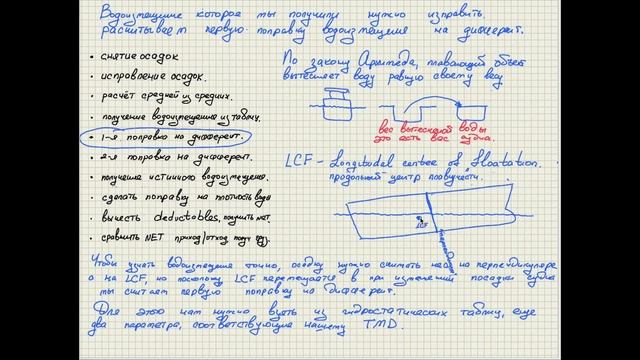 Водоизмещение которое мы получили нужно исправить.
расчитываем первую поправку водоизмещения на дифферент.
• снятие осадок
• исправление осадок.
• расчёт средней из средних.
• получение водоизмещения из таблиц.
• 1-я поправка на дифферент.
• 2-я поправка на дифферент.
• получение истинного водоизмещ.
• сделать поправку на плотность воды
• вычесть deductables, получить NET.
• сравнить NET приход/отход получ
По закону Архимеда, плавающий объект
вытесняет воду равную своему весу
вес вытесненой воды
это есть вес судна.
LCF - Longitudal centre of floatation.
продольный центр плавучести.
LCF
Чтобы узнать водоизмещение точно, осадку нужно снимать не на перпендикуляре
а на LCF, но поскольку LCF перемещается в при изменении посадки судна
мы считаем первую поправку на дифферент.
Для этого нам нужно взять из гидростатических таблиц, еще
два параметра, соответствующие нашему TMD.